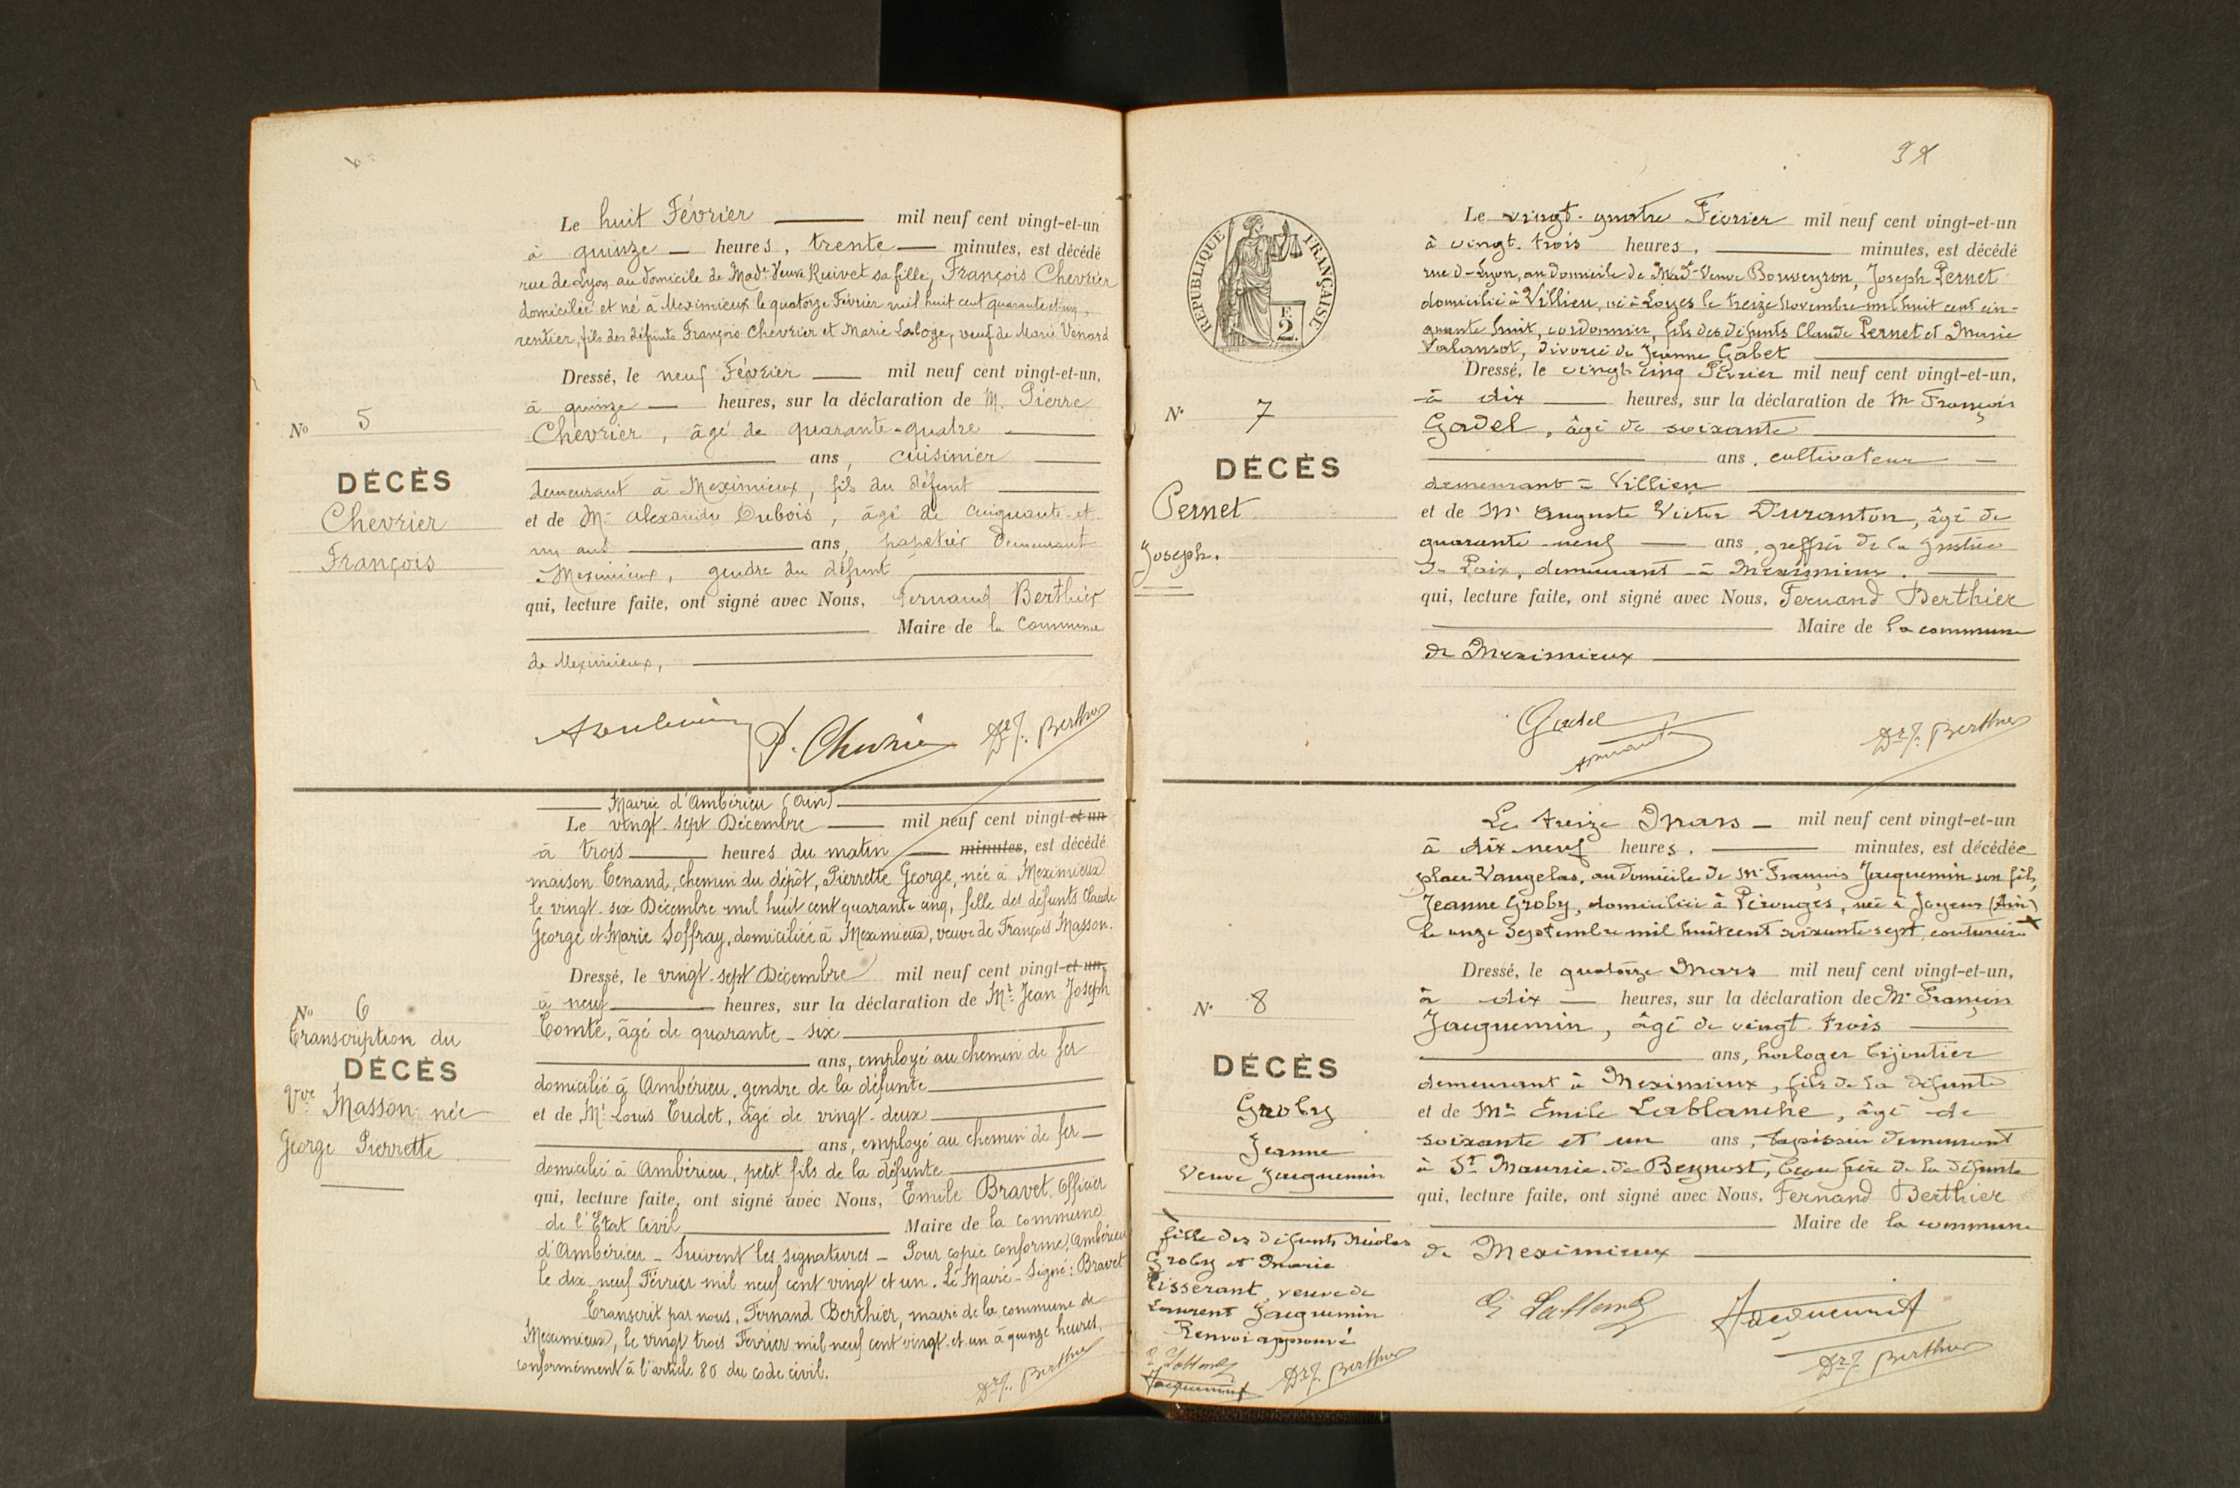 Le huit Février mil neuf cent vingt-et-un
à quinze heures, trente minutes, est décédé
rue de Lyon au domicile de Made Veuve Ruivet sa fille, François Chevrier
domicilié et né à Meximieux le quatorze Février mil huit cent quarante et un,
rentier, fils des défunts François Chevrier et Marie Laloge, veuf de Marie Venard
Dressé, le neuf Février mil neuf cent vingt-et-un,
à quinze heures, sur la déclaration de M. Pierre
Chevrier, âgé de quarante-quatre
ans, cuisinier
demeurant à Meximieux, fils du défunt
et de Mr Alexandre Dubois, âgé de cinquante et
un ans ans, papetier demeurant
à Meximieux, gendre du défunt
qui, lecture faite, ont signé avec Nous, Fernand Berthier
Maire de la Commune
de Meximieux,
P. Chevrier Dr F. Berthier
No 5
DÉCÈS
Chevrier
François
Mairie d'Ambérieu (Ain)
Le vingt-sept Décembre mil neuf cent vingt et un
à trois heures du matin minutes, est décédé
maison Tenand, chemin du dépôt, Pierrette George, née à Meximieux
le vingt-six Décembre mil huit cent quarante cinq, fille des défunts Claude
George et Marie Soffray, domiciliée à Meximieux, veuve de François Masson.
Dressé, le vingt-sept Décembre mil neuf cent vingt-et-un,
à neuf heures, sur la déclaration de Mr Jean Joseph
Comte, âgé de quarante-six
ans, employé au chemin de fer
domicilié à Ambérieu, gendre de la défunte
et de Mr Louis Tudet, âgé de vingt-deux
ans, employé au chemin de fer
domicilié à Ambérieu, petit fils de la défunte
qui, lecture faite, ont signé avec Nous, Emile Bravet, Officier
de l'Etat Civil Maire de la commune
d'Ambérieu - Suivent les signatures - Pour copie conforme, Ambérieu
le dix-neuf Février mil neuf cent vingt et un. Le Maire - Signé: Bravet
Transcrit par nous, Fernand Berthier, maire de la commune de
Meximieux, le vingt trois Février mil neuf cent vingt et un à quinze heures,
conformément à l'article 80 du code civil.
Dr F. Berthier
No 6
Transcription du
DÉCÈS
Vve Masson née
George Pierrette
RÉPUBLIQUE FRANÇAISE
2F.
Le vingt-quatre Février mil neuf cent vingt-et-un
à vingt-trois heures, minutes, est décédé
rue de Lyon, au domicile de Made Veuve Bouveyron, Joseph Pernet
domicilié à Villieu, né à Loyes le treize Novembre mil huit cent cin-
quante huit, cordonnier, fils des défunts Claude Pernet et Marie
Valansot, divorcé de Jeanne Gabet
Dressé, le vingt cinq Février mil neuf cent vingt-et-un,
à dix heures, sur la déclaration de Mr François
Gadel, âgé de soixante
ans, cultivateur
demeurant à Villieu
et de Mr Auguste Victor Duranton, âgé de
quarante-neuf ans, greffier de la Justice
de Paix, demeurant à Meximieux.
qui, lecture faite, ont signé avec Nous, Fernand Berthier
Maire de la commune
de Meximieux
Gadel
Dr F. Berthier
No 7
DÉCÈS
Pernet
Joseph.
Le treize Mars mil neuf cent vingt-et-un
à dix-neuf heures, minutes, est décédée
place Vaugelas, au domicile de Mr François Jacquemin son fils,
Jeanne Groby, domiciliée à Pérouges, née à Joyeux (Ain)
le onze Septembre mil huit cent soixante sept, couturière X
Dressé, le quatorze Mars mil neuf cent vingt-et-un,
à dix heures, sur la déclaration de Mr François
Jacquemin, âgé de vingt-trois
ans, horloger bijoutier
demeurant à Meximieux, fils de la défunte
et de Mr Emile Lablanche, âgé de
soixante et un ans, tapissier demeurant
à St Maurice-de-Beynost, beau frère de la défunte
qui, lecture faite, ont signé avec Nous, Fernand Berthier
Maire de la commune
de Meximieux
Dr F. Berthier
No 8
DÉCÈS
Groby
Jeanne
Veuve Jacquemin
fille des défunts Nicolas
Groby et Marie
Tisserant, veuve de
Laurent Jacquemin
Renvoi approuvé
Dr F. Berthier